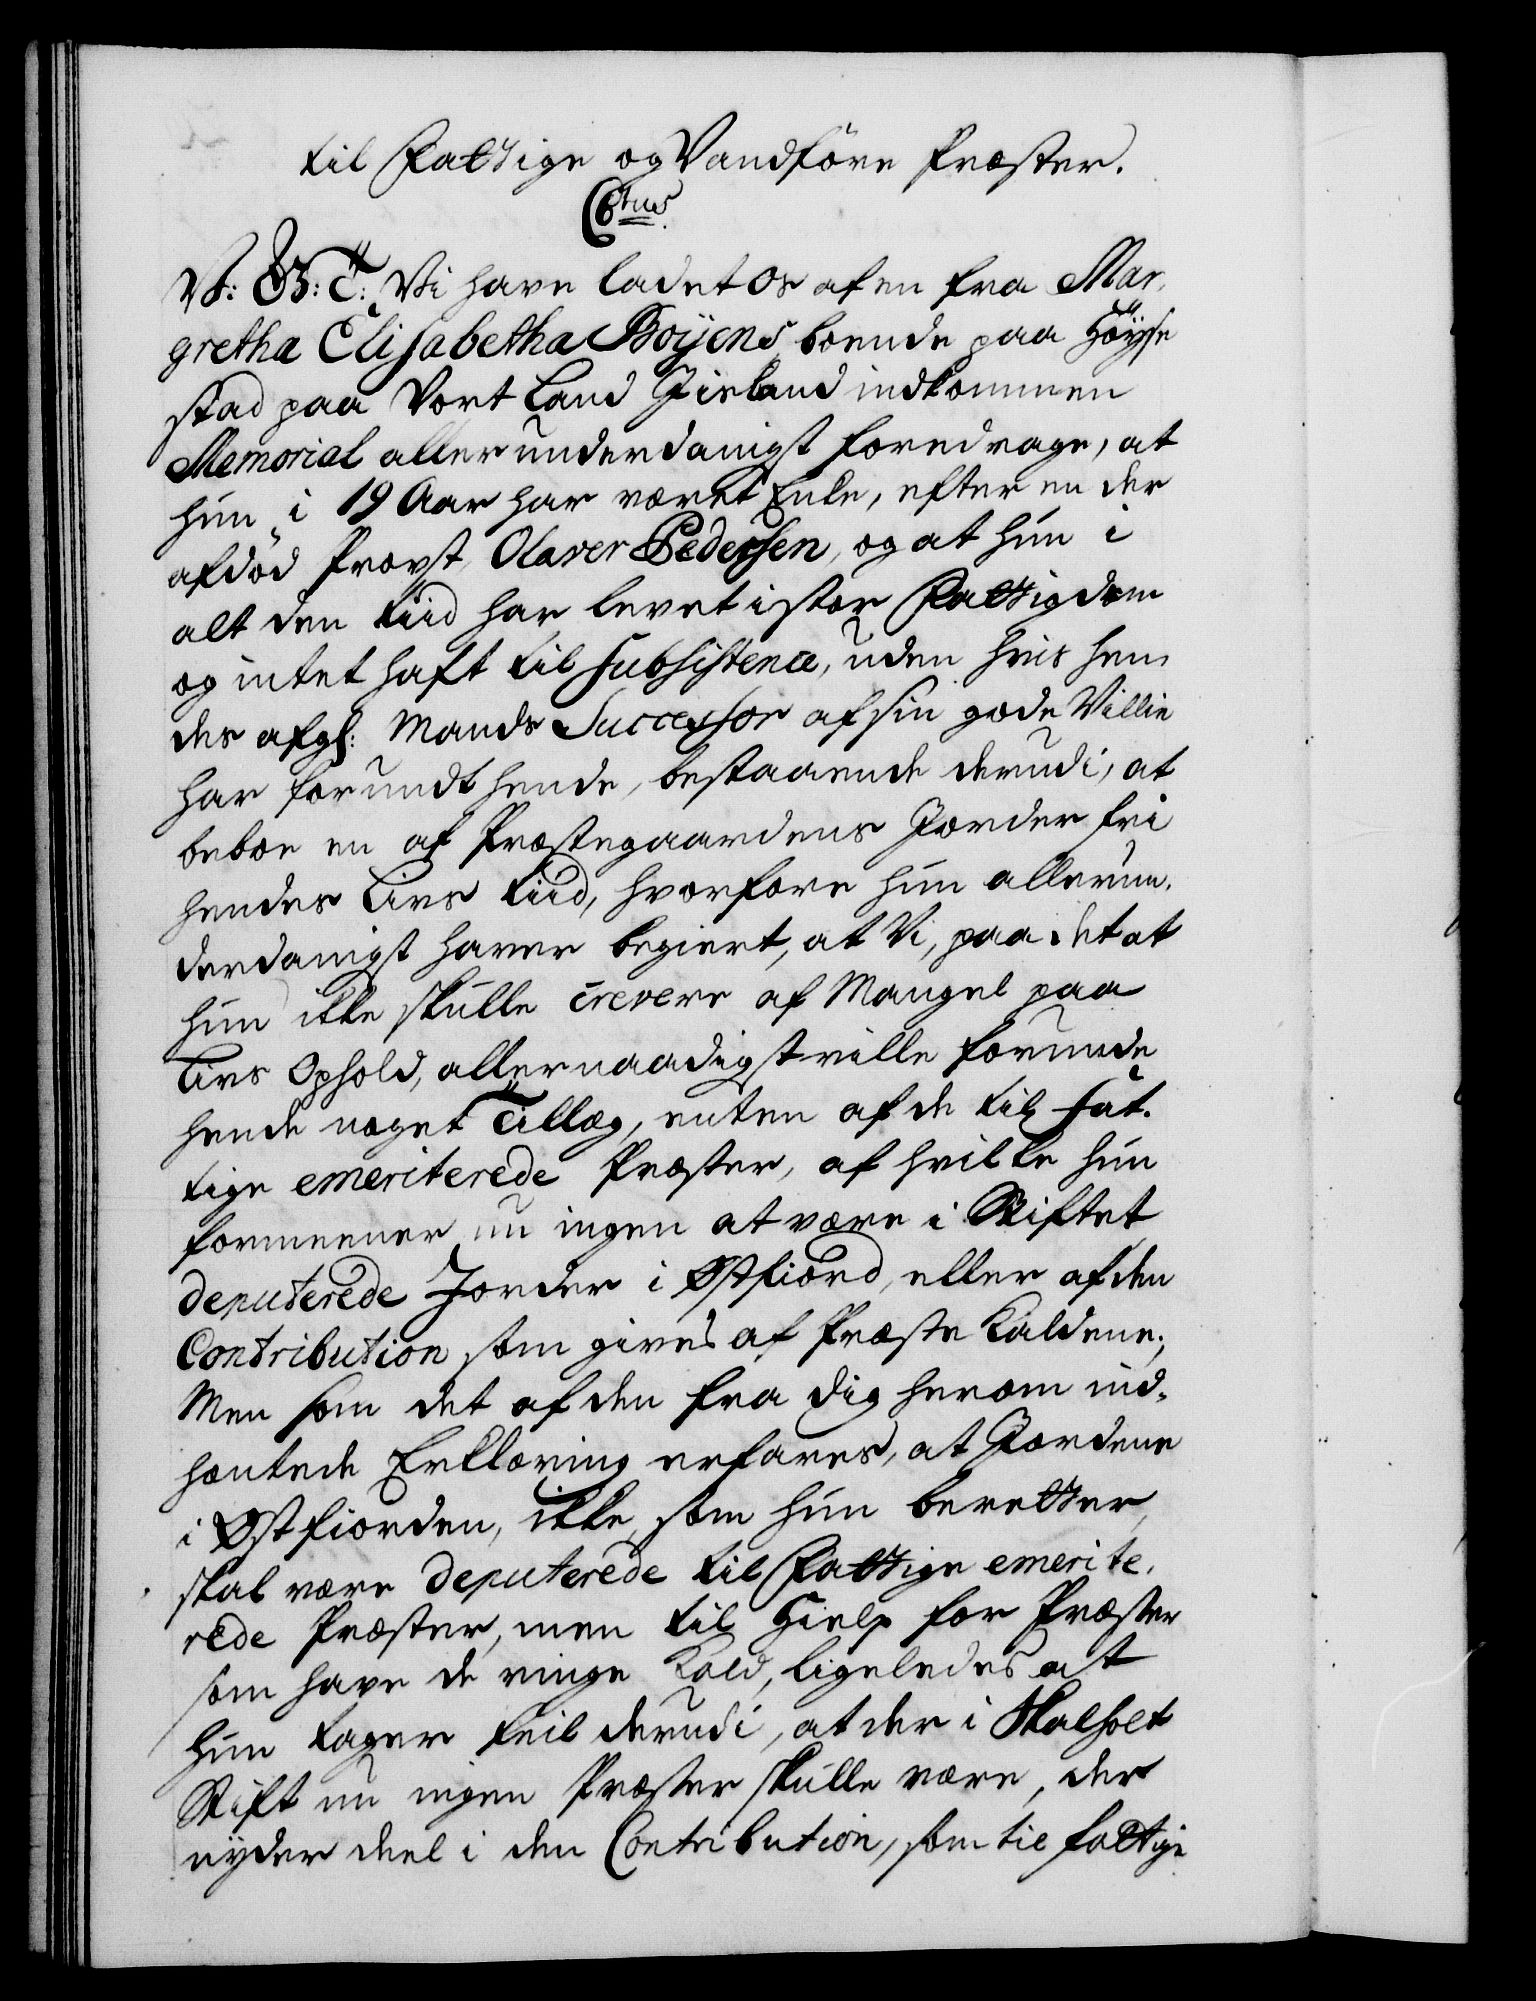 til Fattige og Vandföre Præster.
C6tus.
V: G: T: Vi have ladet Os af en fra Mar,
gretha Elisabetha Boijens, boende paa Höyse
stad paa Vort Land Jisland indkommen
Memorial allerunderdanigst foredrage, at
hun i 19 Aar har været Enke, efter en der
afdöd Provst, Olaver Pedersen, og at hun i
alt den tiid har levet i stor Fattigdom
og intet haft til Subsistence, uden hvis hen
des afgl: Mands Successor af sin gode Villie
har forundt hende, bestaaende derudi, at
beboe en af Præstegaardens Jorder fri
hendes Livs tiid, hvorfore hun allerun,
derdanigst haver begiert, at Vi, paa det at
hun ikke skulle crepere af Mangel paa
Livs Ophold, allernaadigst ville forunde
hende noget Tillæg, enten af de til fat,
tige emeriterede Præster, af hvilke hun
formeener nu ingen at være i Stiftet
deputerede Jorder i Østfiord, eller af den
Contribution som gives af Præste Kaldene;
Men som det af den fra dig herom ind,
hentede Erklæring erfares, at Jordene
i Østfiorden, ikke, som hun beretter,
skal være deputerede til Fattige emerite,
rede Præster, men til Hielp for Præster
som have de ringe Kald, ligeledes at
hun tager feil derudi, at der i Skalholt
Stift nu ingen Præster skulle være, der
nyder deel i den Contribution, som til fattige